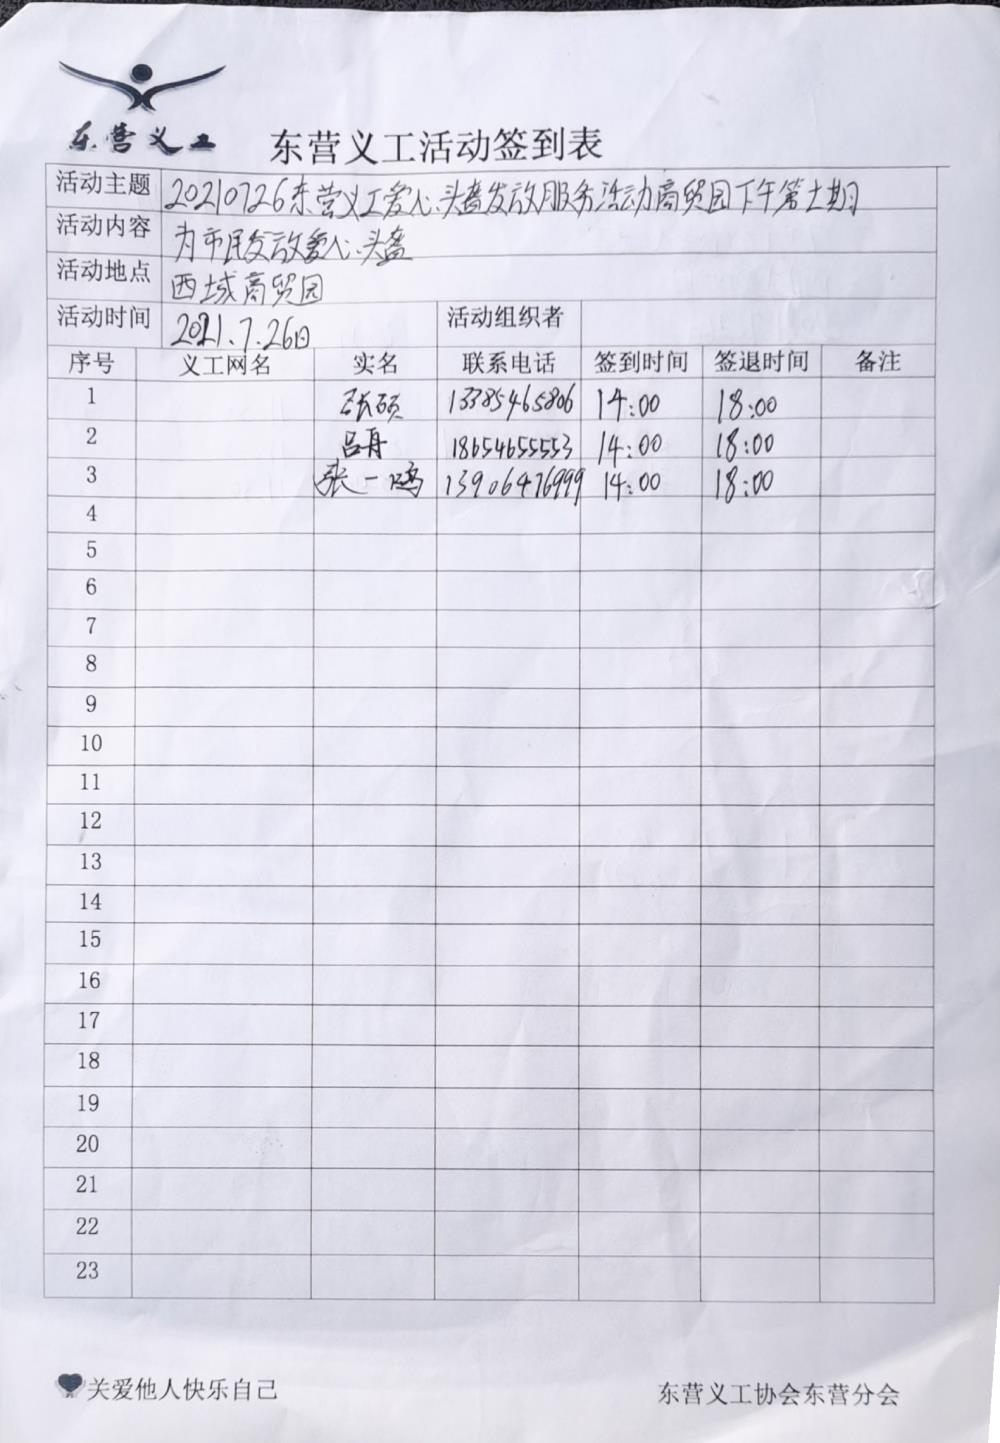 东营义工
东营义工活动签到表
活动主题 20210726东营义工爱心头盔发放服务活动商贸园下午第七期
活动内容 为市民发放爱心头盔
活动地点 西城商贸园
活动时间 2021.7.26日 活动组织者
序号 义工网名 实名 联系电话 签到时间 签退时间 备注
1 张硕 13385465806 14:00 18:00
2 吕舟 18654655553 14:00 18:00
3 张一鸣 13906476999 14:00 18:00
4
5
6
7
8
9
10
11
12
13
14
15
16
17
18
19
20
21
22
23
关爱他人快乐自己 东营义工协会东营分会